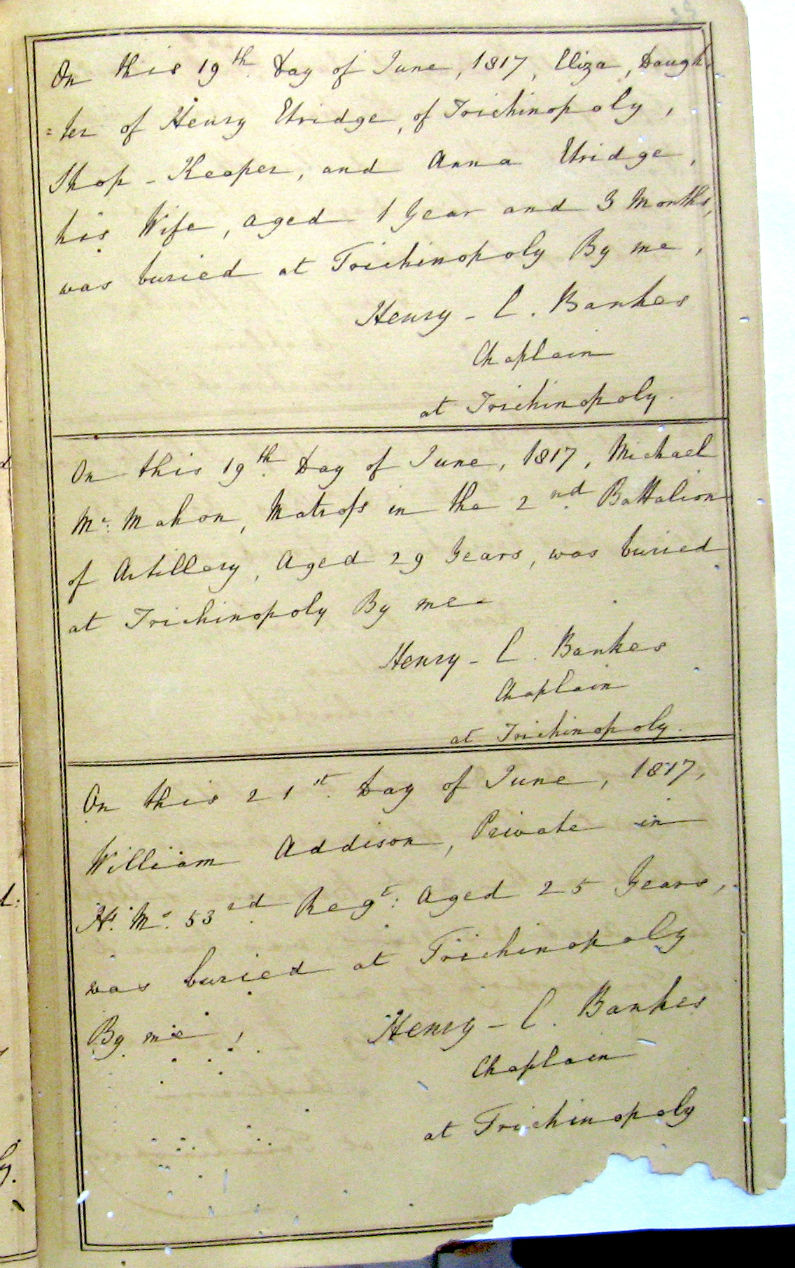 On this 19th Day of June, 1817, Eliza, Daugh
=ter of Henry Etridge, of Trichinopoly,
Shop-Keeper, and Anna Etridge,
his Wife, aged 1 Year and 3 Months,
was buried at Trichinopoly By me,
Henry - C. Bankes
Chaplain
at Trichinopoly.
On this 19th Day of June, 1817, Michael
Mc: Mahon, Matross in the 2nd Battalion
of Artillery, Aged 29 Years, was buried
at Trichinopoly By me
Henry - C. Bankes
Chaplain
at Trichinopoly.
On this 21st Day of June, 1817,
William Addison, Private in
H: Ms 53rd Regt: Aged 25 Years,
was buried at Trichinopoly
By me,
Henry - C. Bankes
Chaplain
at Trichinopoly